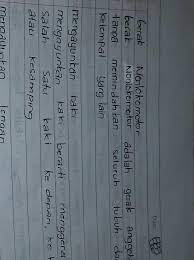 Gerak Nonlokomotor
Gerak Nonlokomotor adalah gerak anggota
tanpa memindahkan seluruh tubuh da
kelempat yang lain
mengayunkan kaki
mengayunkan kaki berarti menggera
salah satu kaki ke depan, ke b
atau kesamping
mengayunkan lengan